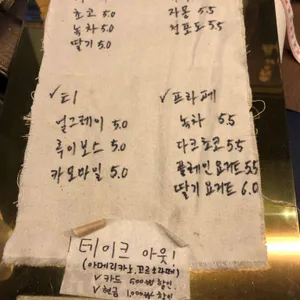 초코 5.0
녹차 5.0
딸기 5.0
자몽 5.5
청포도 5.5
✓티
얼그레이 5.0
루이보스 5.0
카모마일 5.0
✓프라페
녹차 5.5
다크초코 5.5
플레인요거트 5.5
딸기요거트 6.0
테이크 아웃!
(아메리카노,
✓카드 500₩ 할인
✓현금 1,000₩ 할인